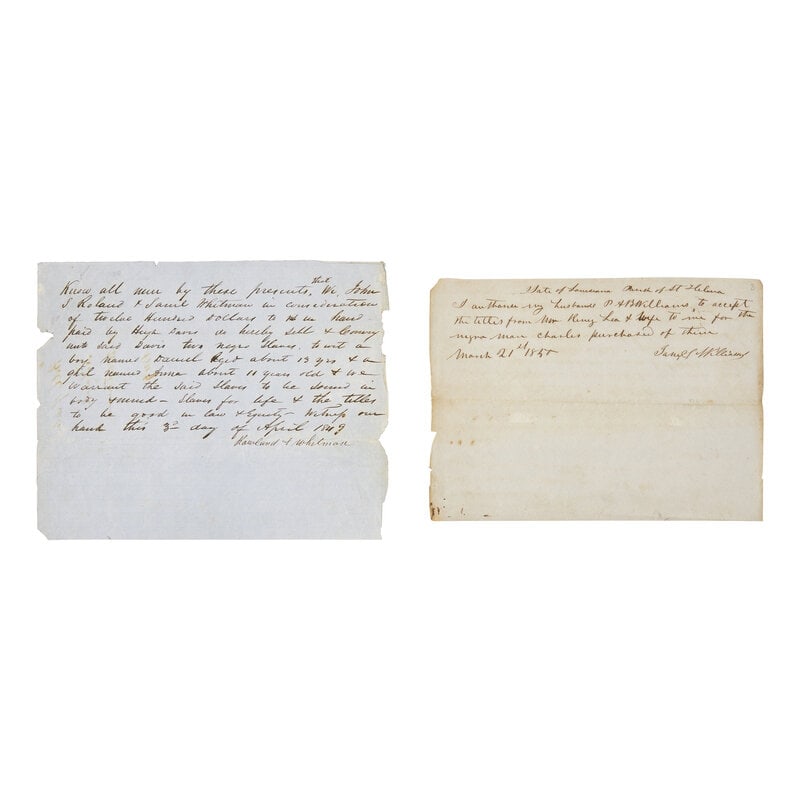 Know all men by these presents, that We, John
S. Roland & Saml Whitman in consideration
of twelve Hundred Dollars to us in hand
paid by Hugh Davis do hereby Sell & Convey
unto said Davis two negro Slaves, to wit a
boy named Daniel Aged about 13 yrs & a
girl named Anna about 11 years old & we
Warrant the said Slaves to be sound in
body & mind – Slaves for life & the titles
to be good in law & Equity – Witness our
hands this 3rd day of April 1849
Rowland & Whitman
State of Louisiana Parish of St Helena
I authorise my husband P & B Williams to accept
the titles from Wm King Lea & wife to me for the
negro man Charles purchased of them
March 21st 1850
Williams